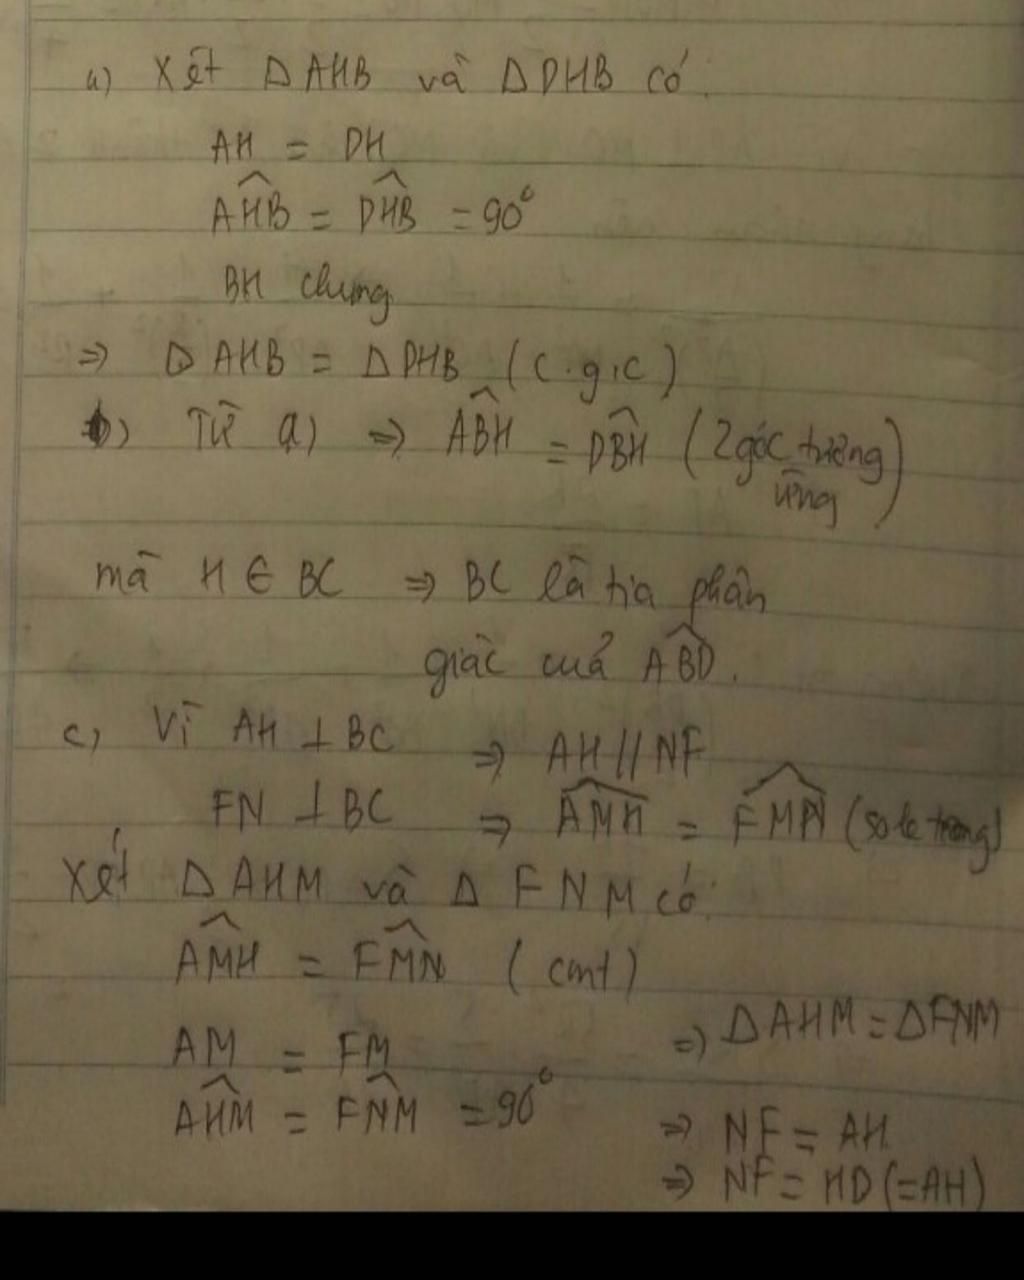 a) Xét Δ AHB và Δ DHB có:
AH = DH
\widehat{AHB} = \widehat{DHB} = 90°
BH chung
⇒ Δ AHB = Δ DHB (c.g.c)
b) Từ a) ⇒ \widehat{ABH} = \widehat{DBH} (2 góc tương
ứng)
mà H ∈ BC ⇒ BC là tia phân
giác của \widehat{ABD}.
c) Vì AH ⊥ BC ⇒ AH // NF
FN ⊥ BC ⇒ \widehat{AMH} = \widehat{FMN} (so le trong)
Xét Δ AHM và Δ FNM có:
\widehat{AMH} = \widehat{FMN} (cmt)
AM = FM ⇒ Δ AHM = Δ FNM
\widehat{AHM} = \widehat{FNM} = 90°
⇒ NF = AH
⇒ NF = HD (=AH)